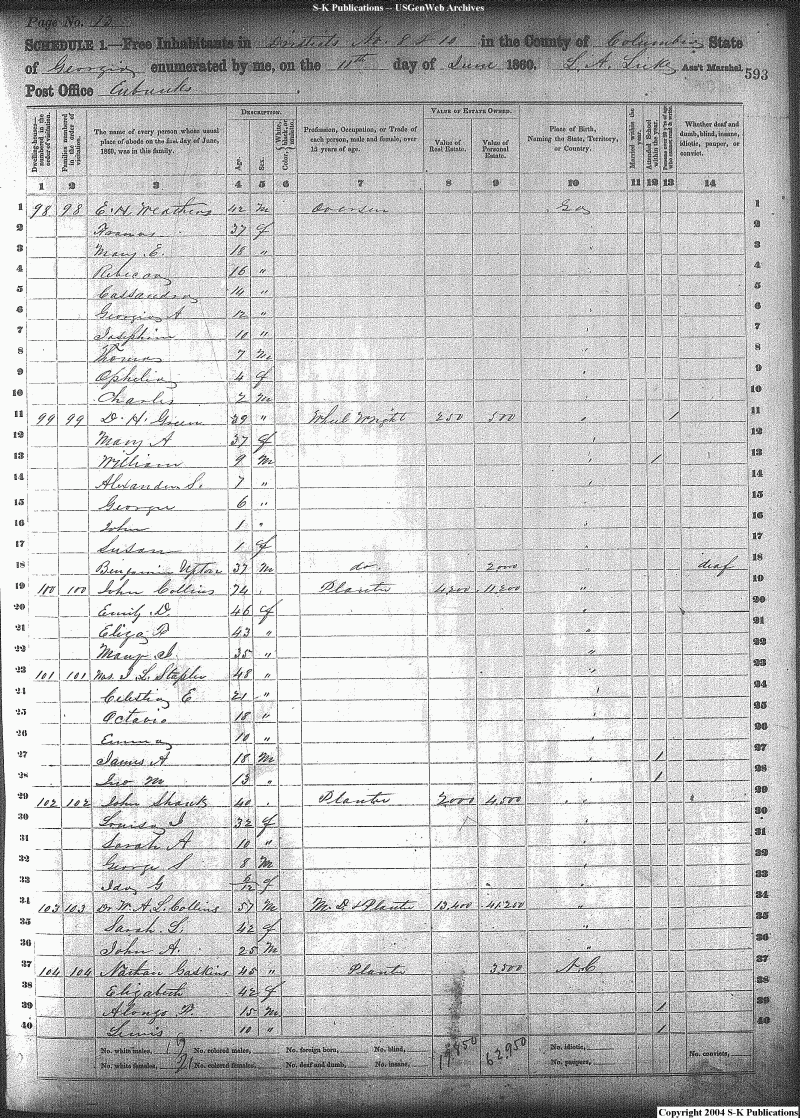 S-K Publications -- USGenWeb Archives
Page No. 12
SCHEDULE 1.—Free Inhabitants in Districts No. 8 & 10 in the County of Columbia State
of Georgia enumerated by me, on the 11th day of June 1860. L. A. Luke Ass't Marshal. 593
Post Office Eubanks
Dwelling-houses numbered in the order of visitation. Families numbered in the order of visitation. The name of every person whose usual place of abode on the first day of June, 1860, was in this family. DESCRIPTION. Age. Sex. Color, White, black, or mulatto. Profession, Occupation, or Trade of each person, male and female, over 15 years of age. VALUE OF ESTATE OWNED. Value of Real Estate. Value of Personal Estate. Place of Birth, Naming the State, Territory, or Country. Married within the year. Attended School within the year. Whether deaf and dumb, blind, insane, idiotic, pauper, or convict.
1 2 3 4 5 6 7 8 9 10 11 12 13 14
1 98 98 E. H. Weathers 42 M Overseer Ga 1
2 37 f 2
3 Mary E. 18 " 3
4 Rebecca 16 " 4
5 Cassandra 14 " 5
6 Georgia A 12 " 6
7 Josephine 10 " 7
8 Thomas 7 M 8
9 Ophelia 4 f 9
10 Charles 2 M 10
11 99 99 D. H. Green 39 " Wheel Wright 250 500 " 1 11
12 Mary A 37 f " 12
13 William 9 M " 1 13
14 Alexander S. 7 " " 14
15 George 6 " 15
16 John 1 " 16
17 Susan 1 f 17
18 Benjamin Upton 37 M do. 2000 " deaf 18
19 100 100 John Collins 74 . Planter 4200 11200 " 19
20 Emily D 46 f " 20
21 Eliza R 43 " " 21
22 Mary J. 35 " " 22
23 101 101 Mrs. J. L. Stapler 48 " " 23
24 Celestia E 21 " " 24
25 Octavia 18 " " 25
26 Emma 10 " " 26
27 James A 18 M " 1 27
28 Jno M 13 " " 1 28
29 102 102 John Shank 40 . Planter 2000 4500 " " 29
30 Louisa J 32 f 30
31 Sarah A 10 " 31
32 George S 8 M 32
33 Ida G 6/12 f " 33
34 103 103 Dr W. A. L. Collins 57 M M. D & Planter 13,400 41,200 " 34
35 Sarah L. 42 f 35
36 John A. 25 M " 36
37 104 104 Nathan Gaskins 45 " Planter 3,500 N. C 37
38 Elizabeth 42 f 38
39 Alonzo F. 15 M 1 39
40 Lewis 10 " 1 40
No. white males, 19 No. colored males, No. foreign born, No. blind, 19,850 62,950 No. idiotic,
No. white females, 21 No. colored females, No. deaf and dumb, No. insane, No. paupers, No. convicts,
Copyright 2004 S-K Publications